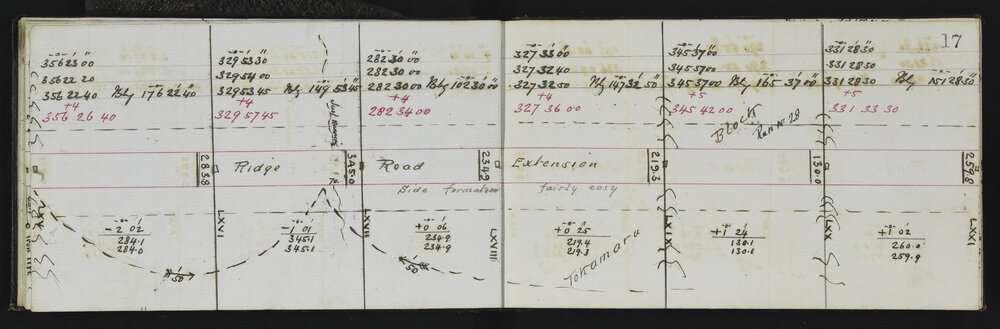 17
-o- / //
356 23 00
356 22 20
356 22 40 Blg 176 22 40
+4
356 26 40
329 53 30
329 54 00
329 53 45 Blg 149 53 45
+4
329 57 45
282 30 00
282 30 00
282 30 00 Blg 102 30 00
+4
282 34 00
327 33 00
327 32 40
327 32 50 Blg 147 32 50
+4
327 36 00
345 37 00
345 37 00
345 37 00 Blg 165 37 00
+5
345 42 00
331 28 30
331 28 30
331 28 30 Blg 151 28 30
+5
331 33 30
Block
Run No 28
283.8
Ridge
345.0
Road
234.9
Extension
219.3
130.0
259.8
Side formation fairly easy
LXVI
LXVII
LXVIII
LXIX
LXX
LXXI
-2 02
284.1
284.0
-1 01
345.1
345.1
+0 06
234.9
234.9
+0 25
219.4
219.3
+1 24
130.1
130.1
+1 02
260.0
259.9
150
150
Tokamaru